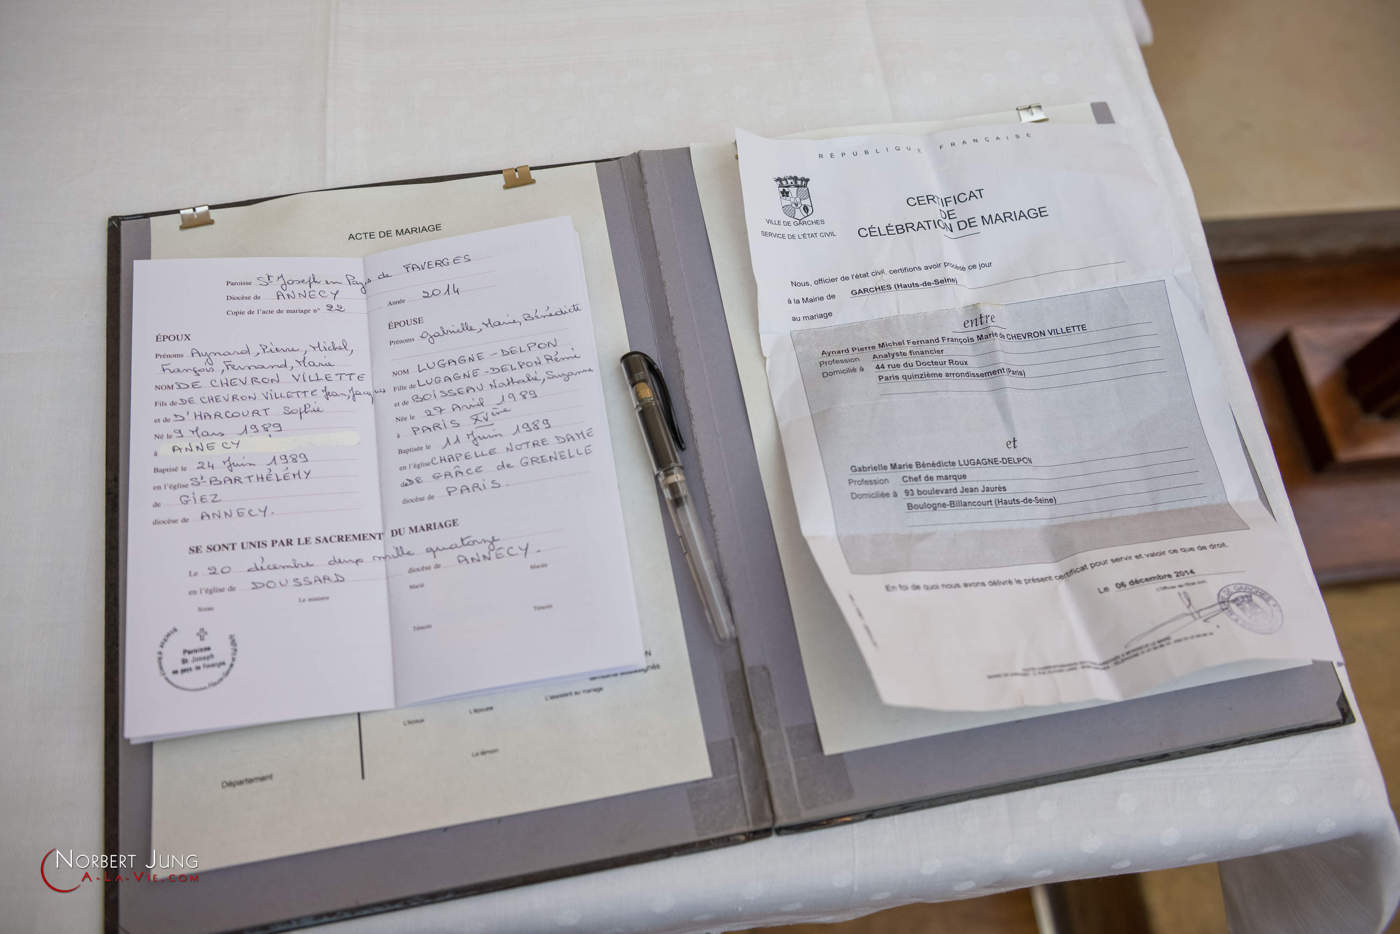 ACTE DE MARIAGE
Paroisse St Joseph en Pays de FAVERGES
Diocèse de ANNECY
Année 2014
Copie de l'acte de mariage n° 22
ÉPOUX
Prénoms Aynard, Pierre, Michel,
François, Fernand, Marie
NOM DE CHEVRON VILLETTE
Fils de DE CHEVRON VILLETTE Jean, Jacques
et de D'HARCOURT Sophie
Né le 9 Mars 1989
à ANNECY
Baptisé le 24 Juin 1989
en l'église St BARTHÉLÉMY
de GIEZ
diocèse de ANNECY.
ÉPOUSE
Prénoms Gabrielle, Marie, Bénédicte
NOM LUGAGNE-DELPON
Fille de LUGAGNE-DELPON Rémi
et de BOISSEAU Nathalie, Suzanne
Née le 27 Avril 1989
à PARIS XVème
Baptisée le 11 Juin 1989
en l'église CHAPELLE NOTRE DAME
de DE GRÂCE de GRENELLE
diocèse de PARIS.
SE SONT UNIS PAR LE SACREMENT DU MARIAGE
Le 20 décembre deux mille quatorze
en l'église de DOUSSARD diocèse de ANNECY.
Le ministre
Marié
Mariée
Témoin
Témoin
Paroisse
St. Joseph
en pays de Faverges
L'assistant au mariage
L'époux
L'épouse
Le témoin
Département
RÉPUBLIQUE FRANÇAISE
VILLE DE GARCHES
SERVICE DE L'ÉTAT CIVIL
CERTIFICAT
DE
CÉLÉBRATION DE MARIAGE
Nous, officier de l'état civil, certifions avoir procédé ce jour
à la Mairie de GARCHES (Hauts-de-Seine)
au mariage
entre
Aynard Pierre Michel Fernand François Marie de CHEVRON VILLETTE
Profession Analyste financier
Domicilié à 44 rue du Docteur Roux
Paris quinzième arrondissement (Paris)
et
Gabrielle Marie Bénédicte LUGAGNE-DELPON
Profession Chef de marque
Domiciliée à 93 boulevard Jean Jaurès
Boulogne-Billancourt (Hauts-de-Seine)
En foi de quoi nous avons délivré le présent certificat pour servir et valoir ce que de droit.
Le 06 décembre 2014
L'Officier de l'Etat civil
NORBERT JUNG
A-LA-VIE.COM